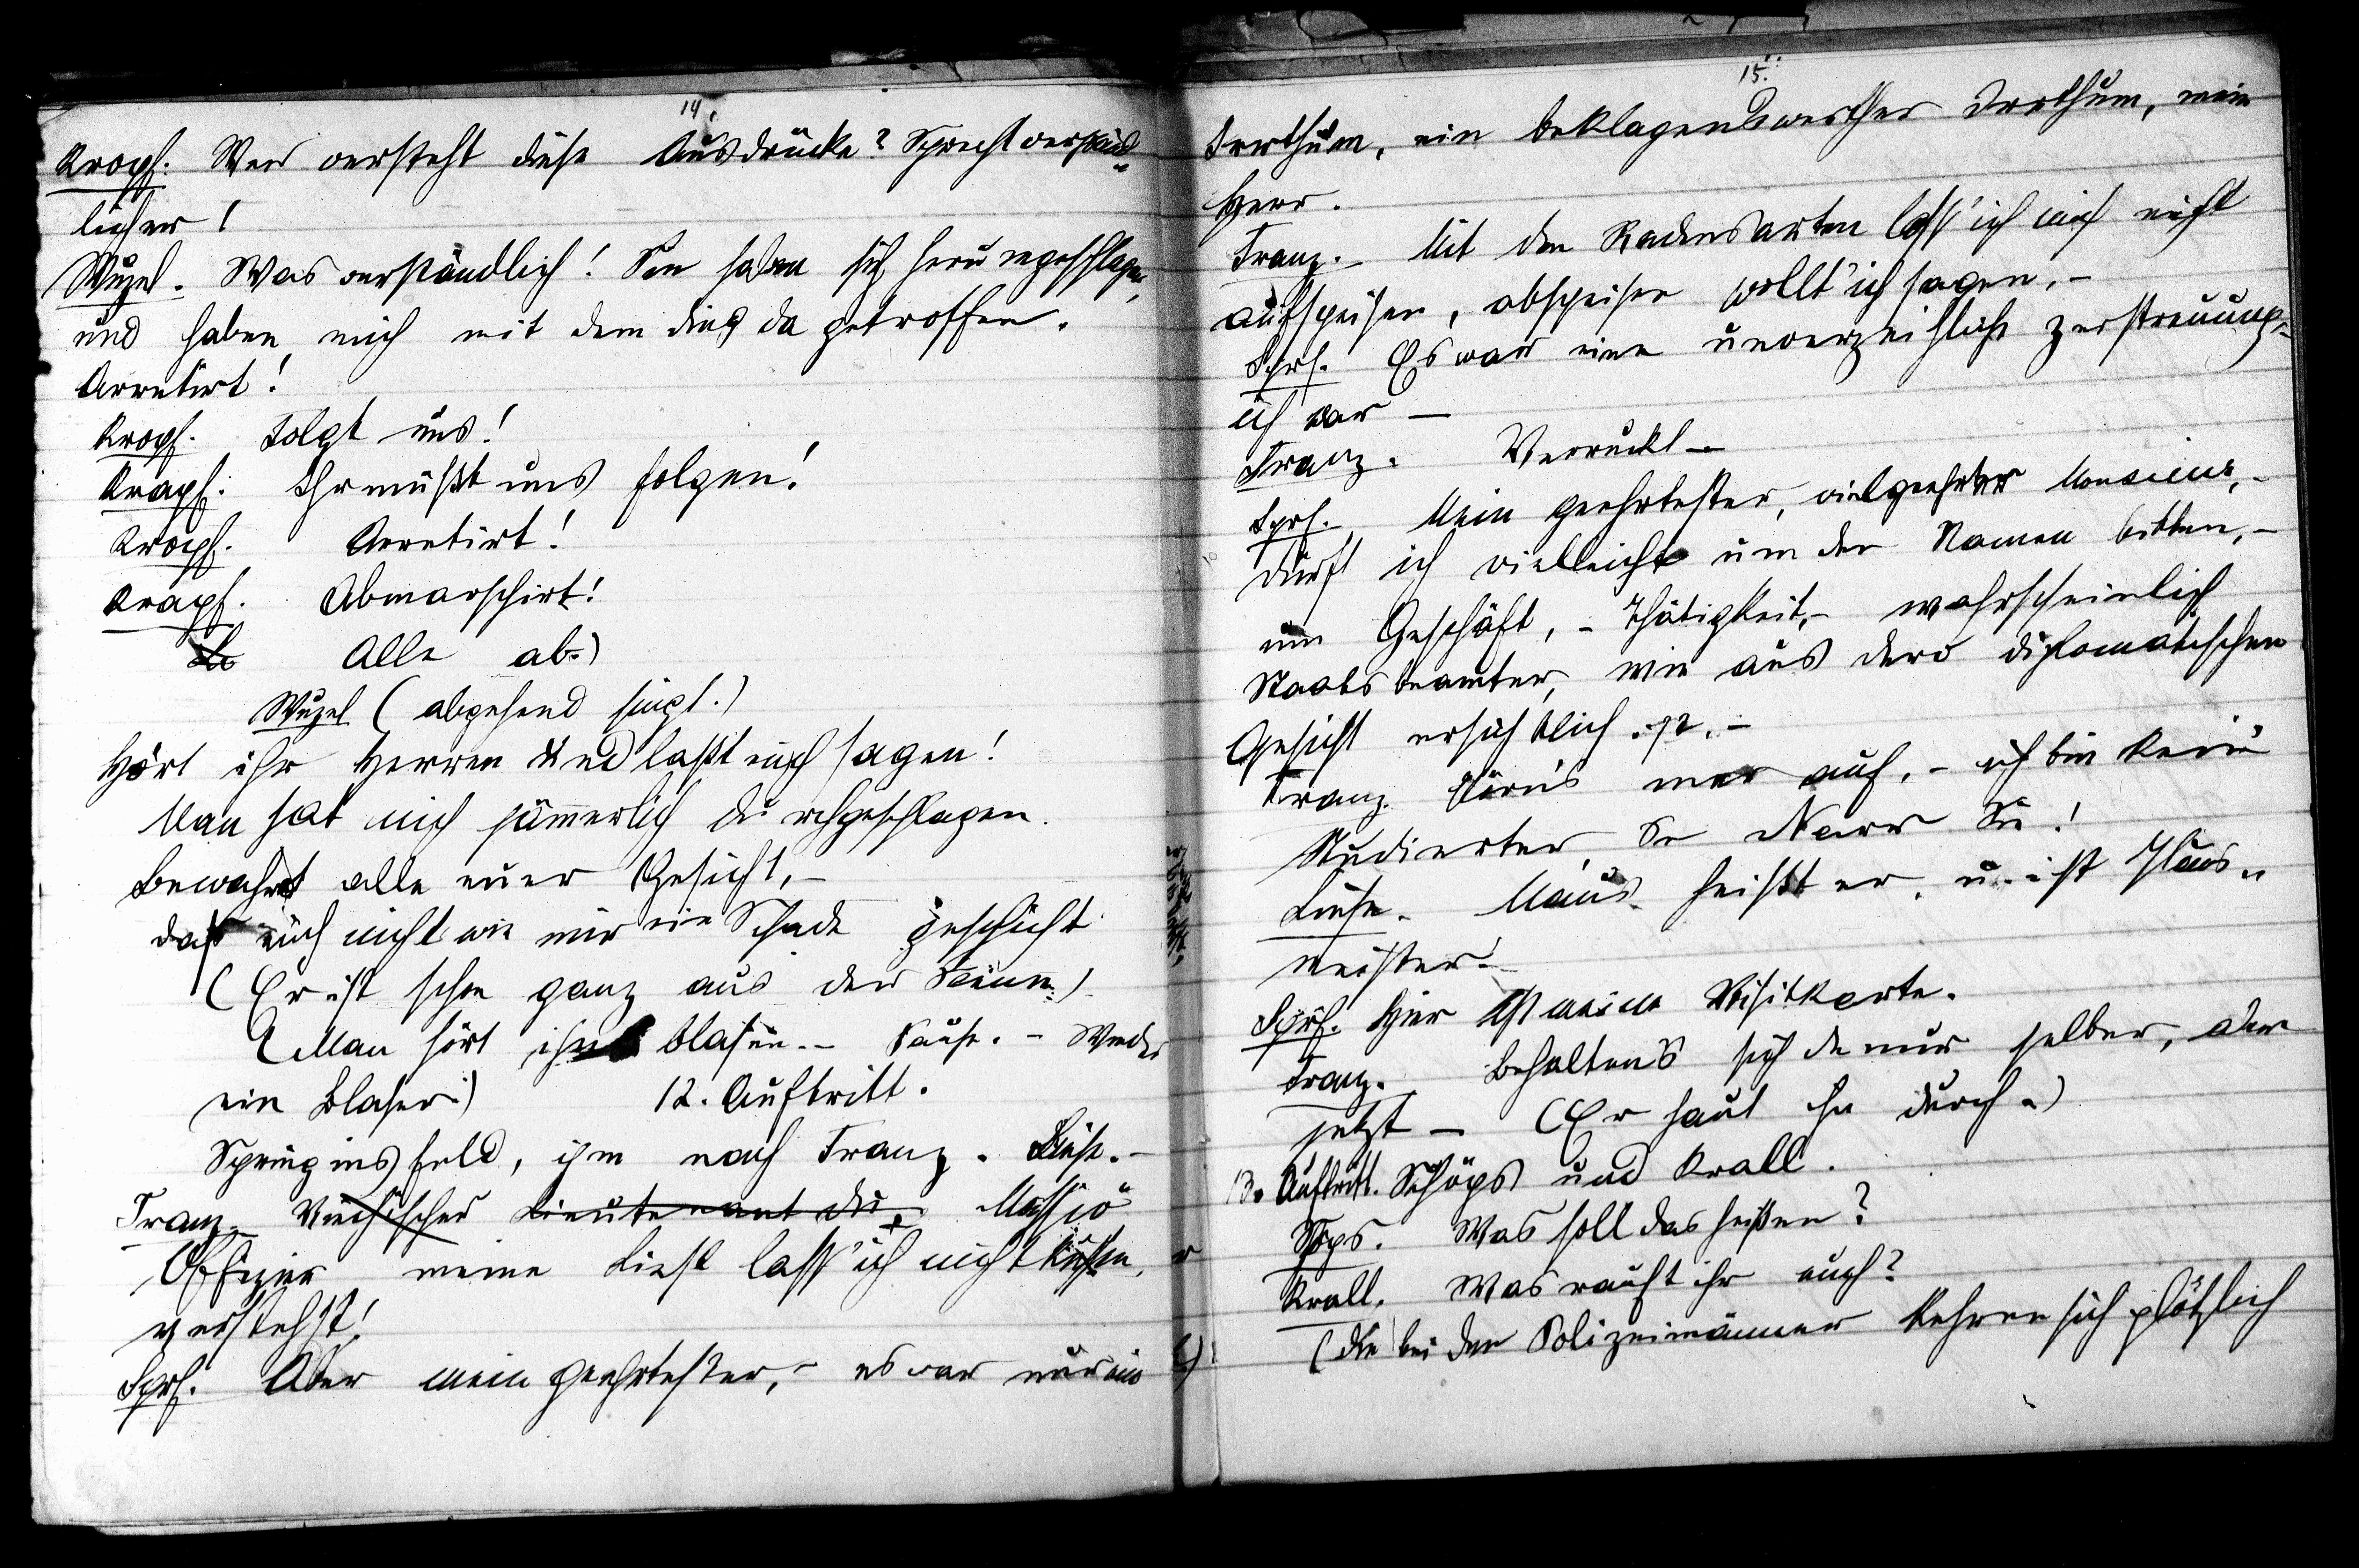 14.
Kropf. Wer versteht diese Ausdrücke? Sprecht verständ-
licher!
Wuzel. Was verständlich! Sie haben sich herumgeschlagen,
und haben mich mit dem ding da getroffen.
Arretirt!
Kropf. Folgt uns!
Krapf. Ihr müßt uns folgen!
Kropf. Arretirt!
Krapf. Abmarschirt!
Alle ab.)
Wuzel (abgehend singt.)
Hört ihr Herren und laßt euch sagen!
Man hat mich jämerlich durchgeschlagen.
Bewahret alle euer Gesicht,-
daß euch nicht wie mir ein Schade geschicht
(Er ist schon ganz aus der Scene.)
(Man hört ihn blasen.- Pause.- Wieder
ein Blaser.) 12. Auftritt.
Springinsfeld, ihm nach Franz. Liese.-
Franz. Viechischer Lieutenant du Mossiö
Offizier meine Liese lass' ich nicht küssen,
verstehst!
Sprf. Aber mein geehrtester,- es war nur ein
15.
Irrthum, ein beklagenswerther Irrthum, mein
Herr.
Franz. Mit den Radensarten lass' ich mich nicht
aufspeisen, abspeisen wollt' ich sagen.-
Sprf. Es war eine unverzeihliche Zerstreuung,-
ich war —
Franz. Verruckt —
Sprf. Mein geehrtester, vielgeehrter Monsieur,-
dürft ich vielleicht um den Namen bitten,-
um Geschäft,- Thätigkeit,- wahrscheinlich
Staatsbeamter, wie aus dero diplomatischen
Gesicht ersichtlich.
Franz. mer auf,- ich bin kein
Studierter, Se Narr Sie!
Liese. Maus heißt er, u. ist Haus-
meister.
Sprf. Hier ist meine Visitkarte.
Franz. Behaltens sich de nur selber, aber
jetzt — (Er haut ihn durch.)
13. Auftritt. Schöps und Krall.
Schöps. Was soll das heißen?
Krall. Was rauft ihr euch?
(die beiden Polizeimänner kehren sich plötzlich